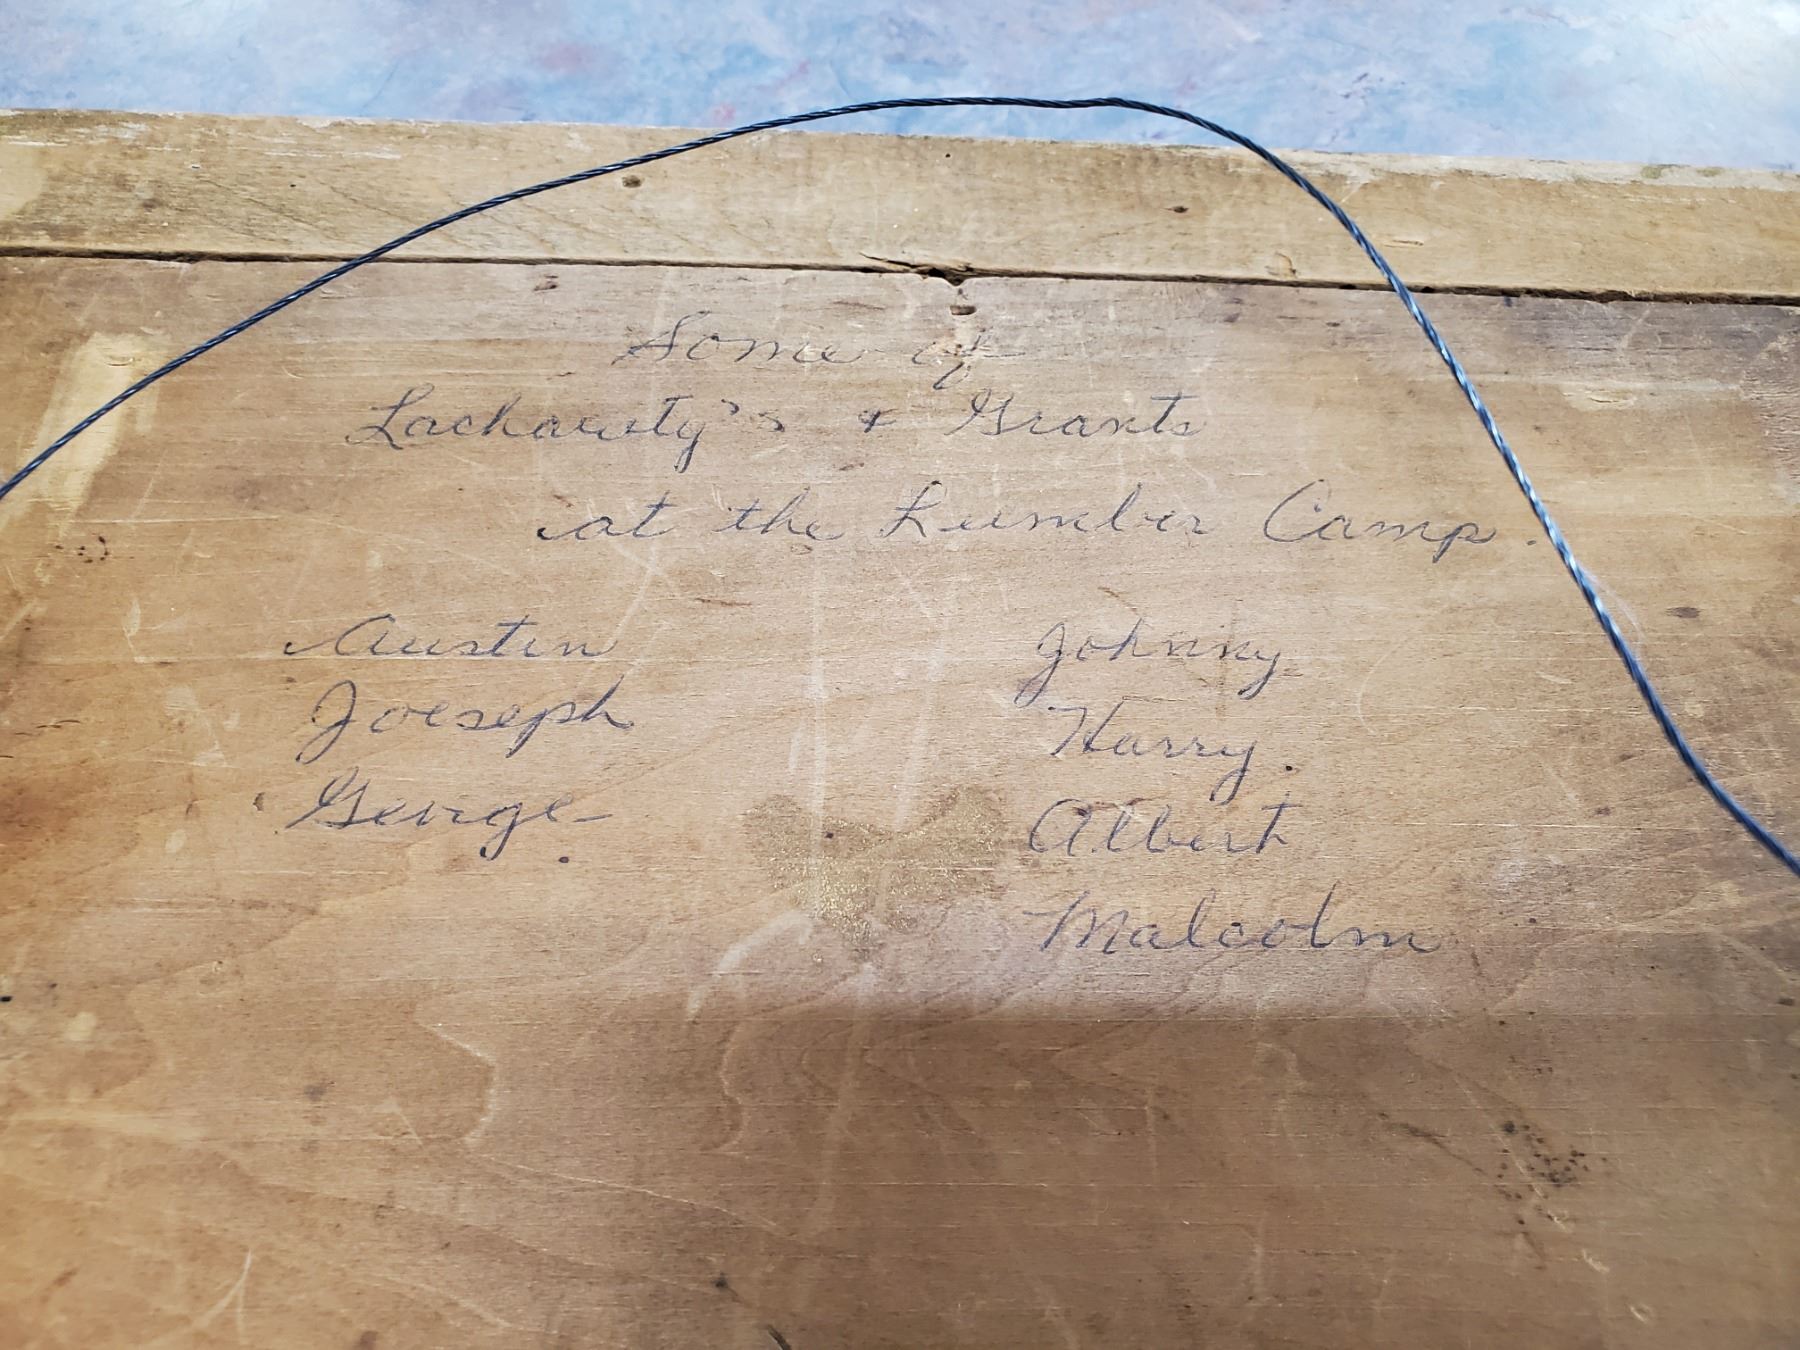 Some of
Lachawty's & Grants
at the Lumber Camp.
Austin
Joeseph
George
Johnny
Harry.
Albert
Malcolm